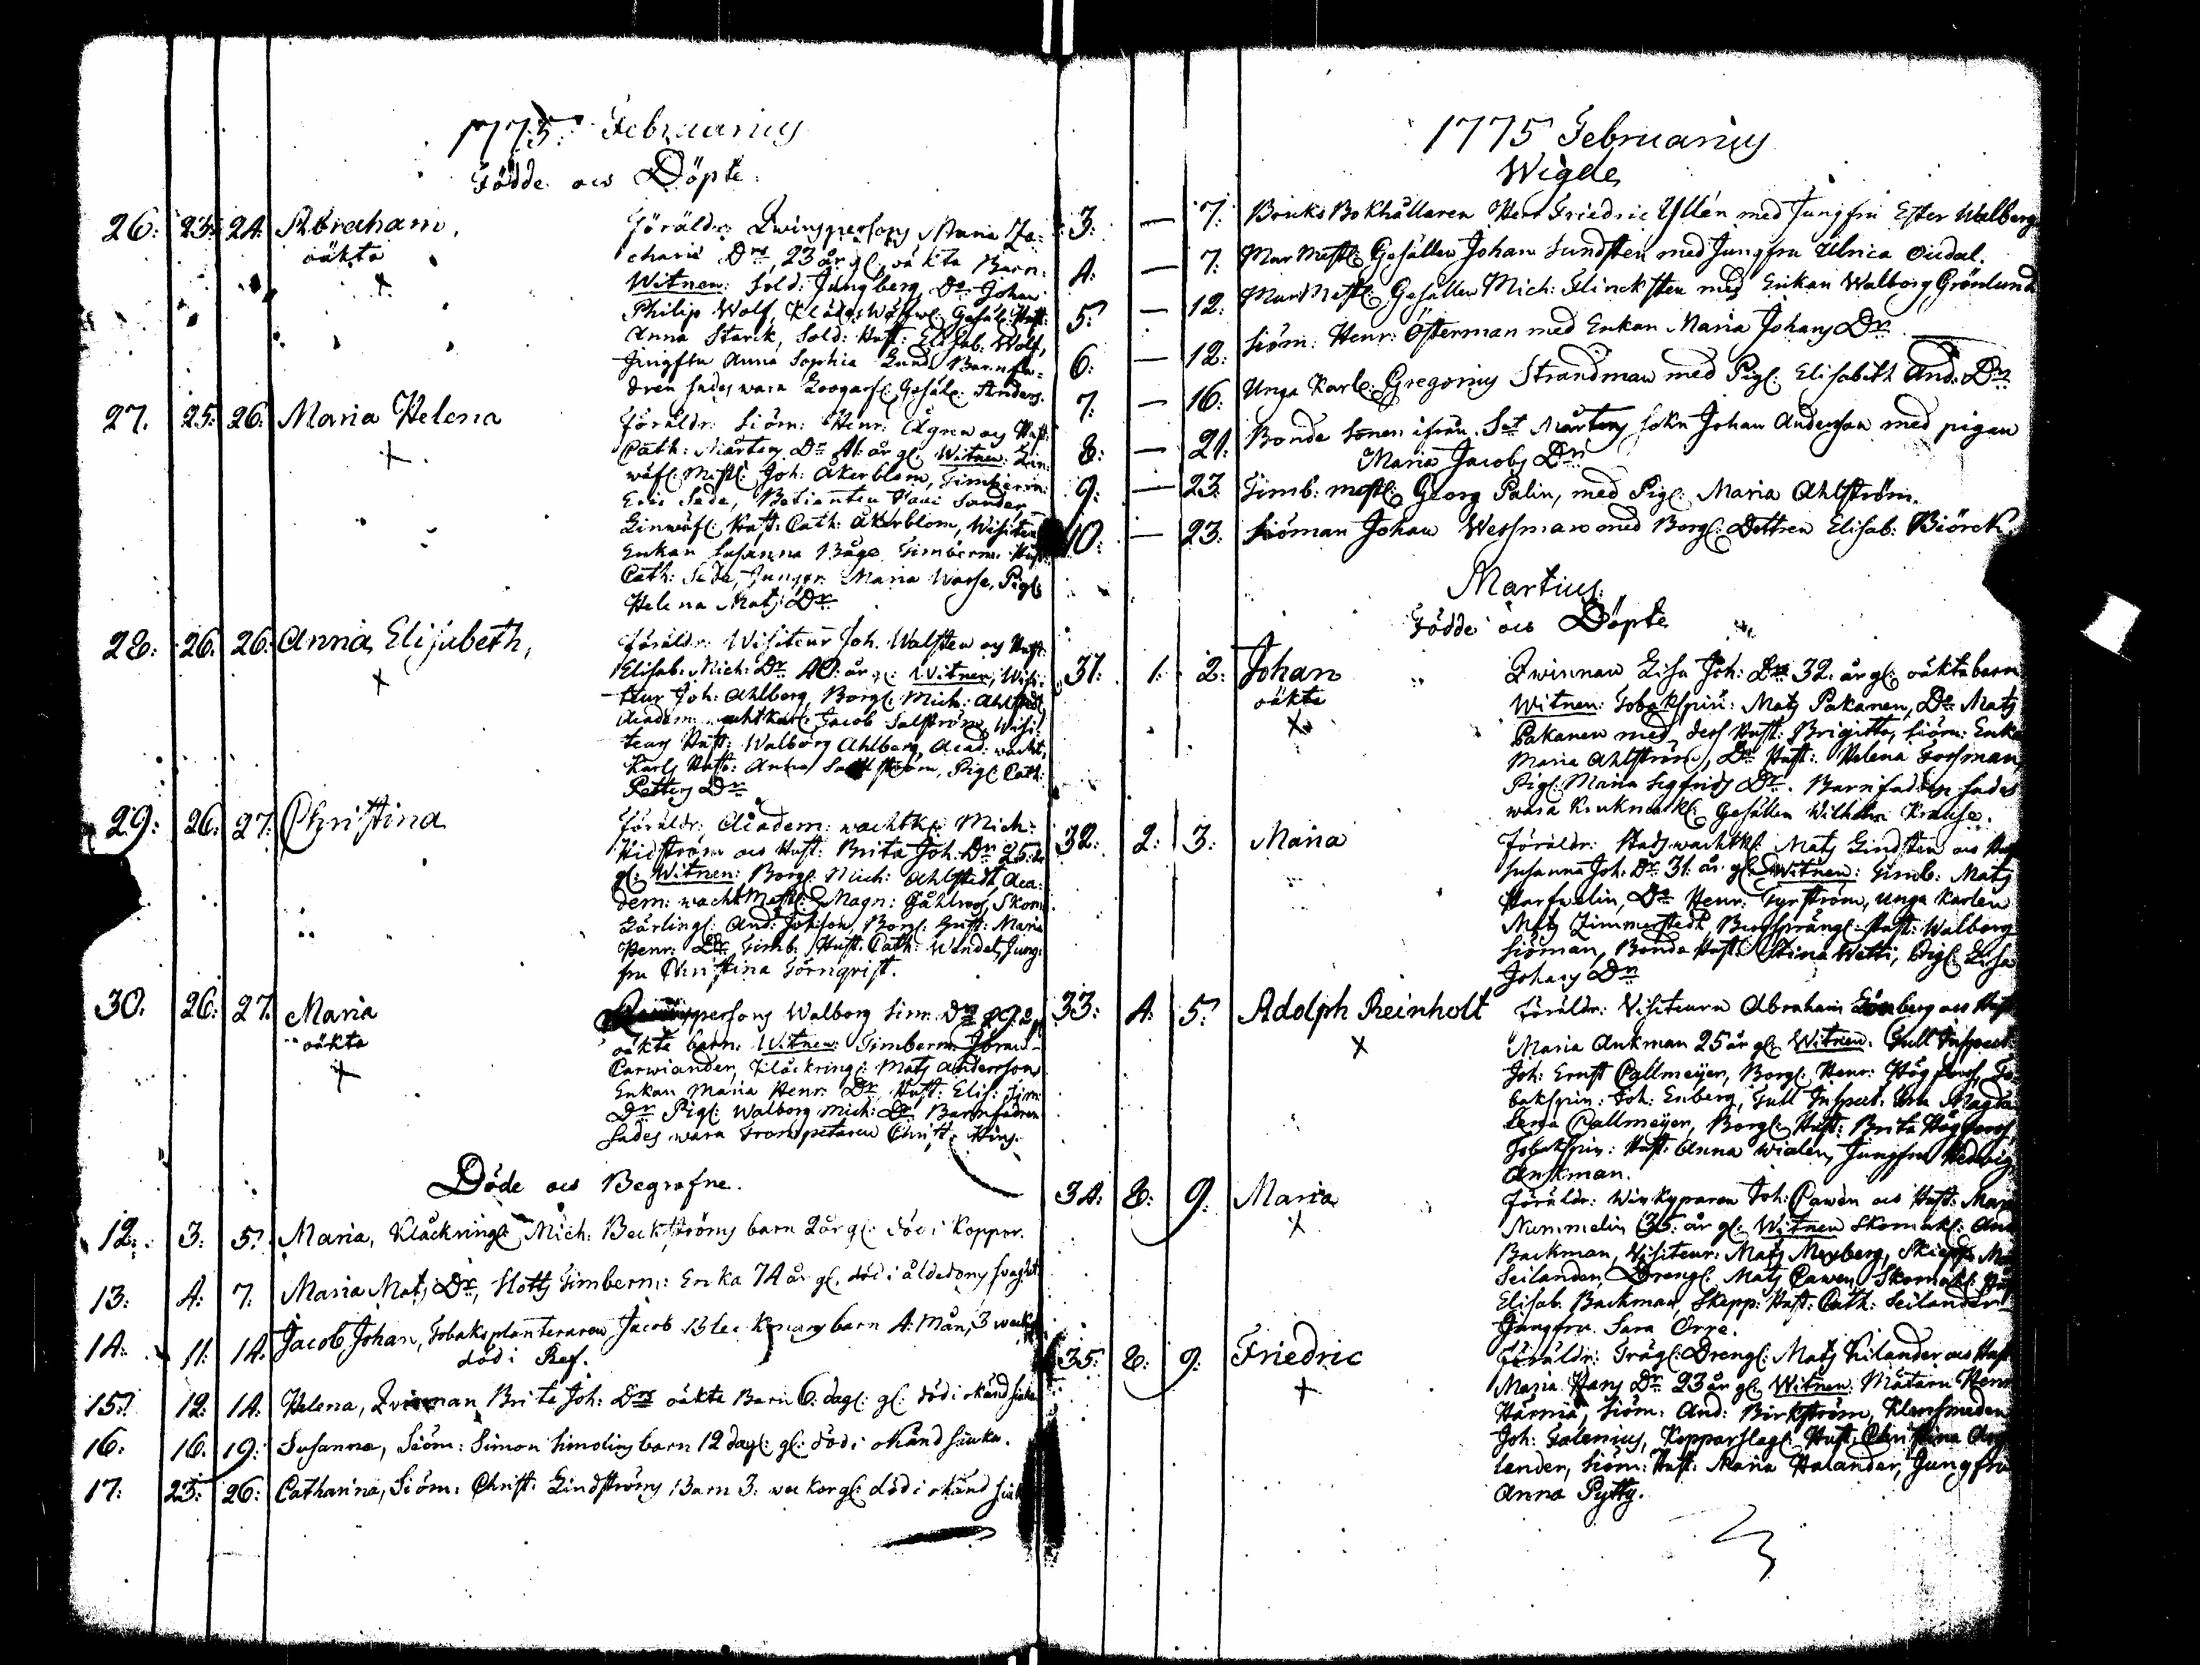 1775. Februarius
Födde och Döpte.
26. 23. 24. Abraham, oäkta
Föräldr: Qwinspersons Maria Za-
chariæ Drs, 23 år gl: oäkta Barn.
Witnen: Sold: Jungberg, Do Johan
Philip Wolf, Klädes Gesäl: Hust:
Anna Starck, Sold: Hust: Elisab: Wolf,
Jungfru Anna Sophia Lund Barnfa-
dren sades wara Gesäl: Anders.
27. 25. 26. Maria Helena
Föräldr: Siöm: Henr: Ågren och Hust:
Cath: Mårtens Dr 41 år gl: Witnen: Lin-
wäf: Mest: Joh: Åkerblom, Timberm:
Eric Sede, Betienten
Linwäf: Hust: Cath: Åkerblom, Visiteur
Enkan Susanna Båge Timberm: Hust:
Cath: Sede, Jungfr: Maria Pig:
Helena Mats Dr
28. 26. 26. Anna Elisabeth,
Föräldr: Visiteur Joh. Walsten och Hust:
Elisab: Mich: Dr 40 år gl: Witnen, Visi-
teur Joh: Ahlberg, Borg: Mich: Ahlstedt,
Academ: wachtkarl: Jacob Salström, Visi-
teurs Hust: Walborg Ahlberg, Acad: wacht-
Karls Hust: Anna Salström, Pig: Cath:
Petters Dr
29. 26. 27. Christina
Föräldr: Academ: wachtk: Mich:
Hidström och Hust: Brita Joh: Dr 25 år
gl: Witnen: Borg: Mich: Ahlstedt, Aca-
dem: wacht Mest: Magn: Skom:
Lärling: And: Johson, Borg: Hust: Maria
Henr: Dr Timb: Hust: Cath: Wendel, Jung-
fru Christina Törnqvist.
30. 26. 27. Maria oäkta
Qwinspersons Walborg Sim: Dr 29 år
oäkte barn: Witnen: Timberm: Jöran
Carwiander, Klåckring: Mats Andersson
Enkan Maria Henr: Dr Hust: Elis: Sim:
Dr Pig: Walborg Mich: Dr Barnfadren
sades wara Trompetaren Christ:
Döde och Begrafne.
12. 3. 5. Maria, Klåckring: Mich: Beckströms barn 2 år gl: död i koppor.
13. 4. 7. Maria Mats Dr, Slotts Timberm: Enka 74 år gl. död i ålderdoms swaghet
14. 11. 14. Jacob Johan, Tobaks planteraren Jacob Bleckmans barn 4 Mån, 3 weck:
död i Ref.
15. 12. 14. Helena, Qwinnan Brita Joh: Drs oäkta Barn 6 dag: gl: död i okänd siuka
16. 16. 19. Susanna, Siöm: Simon Simolins barn 12 dag: gl: död i okänd siuka.
17. 23. 26. Catharina, Siöm: Christ: Lindströms Barn 3: weckor gl: död i okänd siuk
1775 Februarius
Wigde
3. — 7. Bruks Bokhållaren Herr Friedric Yllén med Jungfru Ester Walberg
4. — 7. Mur Mest: Gesällen Johan Sundsten med Jungfru Ulrica
5. — 12. Mur Mest: Gesällen Mich: Flincksten med Enkan Walborg Grönlund
6. — 12. Siöm: Henr: Österman med Enkan Maria Johans Dr
7. — 16. Unga Karl: Gregorius Strandman med Pig: Elisabeth And: Dr
8. — 21. Bonde Sonen ifrån St Mårtens Sokn Johan Anderson med pigan
Maria Jacobs Dr
9. — 23. Timb: mest: Georg Palin, med Pig: Maria Ahlström.
10. — 23. Siöman Johan Wessman med Borg: Dottren Elisab: Biörck.
Martius.
Födde och Döpte
31. 1. 2. Johan oäkta
Qwinnan Lisa Joh: Drs 32 år gl: oäkta barn
Witnen: Tobakspin: Mats Pakanen, Do Mats
Pakanen med dess Hust: Brigitta, Siöm: Enka
Maria Ahlström, Do Hust: Helena Forsman,
Pig: Maria Sigfrids Dr. Barnfadren sades
wara Krukmak: Gesällen Wilhelm Krause.
32. 2. 3. Maria
Föräldr: Stads wachtk: Mats Lindsten och Hust
Susanna Joh: Dr 31 år gl: Witnen: Timb: Mats
Harfwelin, Do Henr: Fyrström, unga Karlen
Mats Zimmerstedt, Hust: Walborg
Siöman, Bonde Hust: Stina Wetti, Pig: Lisa
Johans Dr
33. 4. 5. Adolph Reinholt
Föräldr: Visiteuren Abraham Enberg och Hust
Maria Ankman 25 år gl: Witnen: Tull Inspect:
Joh: Ernst Callmeijer, Borg: Henr: Högfors, To-
bakspin: Joh: Enberg, Tull Inspect: Fru Magda-
lena Callmeijer, Borg: Hust: Brita Högfors,
Tobakspin: Hust: Anna Wialen, Jungfru Hedwig
Ankman.
34. 8. 9. Maria
Föräldr: Winkyparen Joh: Cawén och Hust: Maria
Nummelin 35 år gl: Witnen Skomak: And
Backman, Visiteur: Mats Skepp:
Seilander, Dreng: Mats Cawen, Skomak: Hust
Elisab. Backman, Skepp: Hust: Cath: Seilander
Jungfru Sara Orre.
35. 8. 9. Friedric
Föräldr: Träg: Dreng: Mats Kilander och Hust
Maria Hans Dr 23 år gl: Witnen: Mätaren Henr
Härniä, Siöm: And: Birkström, Klensmeden
Joh: Talenius, Kopparslag: Hust: Christina
lander, Siöm: Hust: Maria Halander, Jungfru
Anna Pytty.